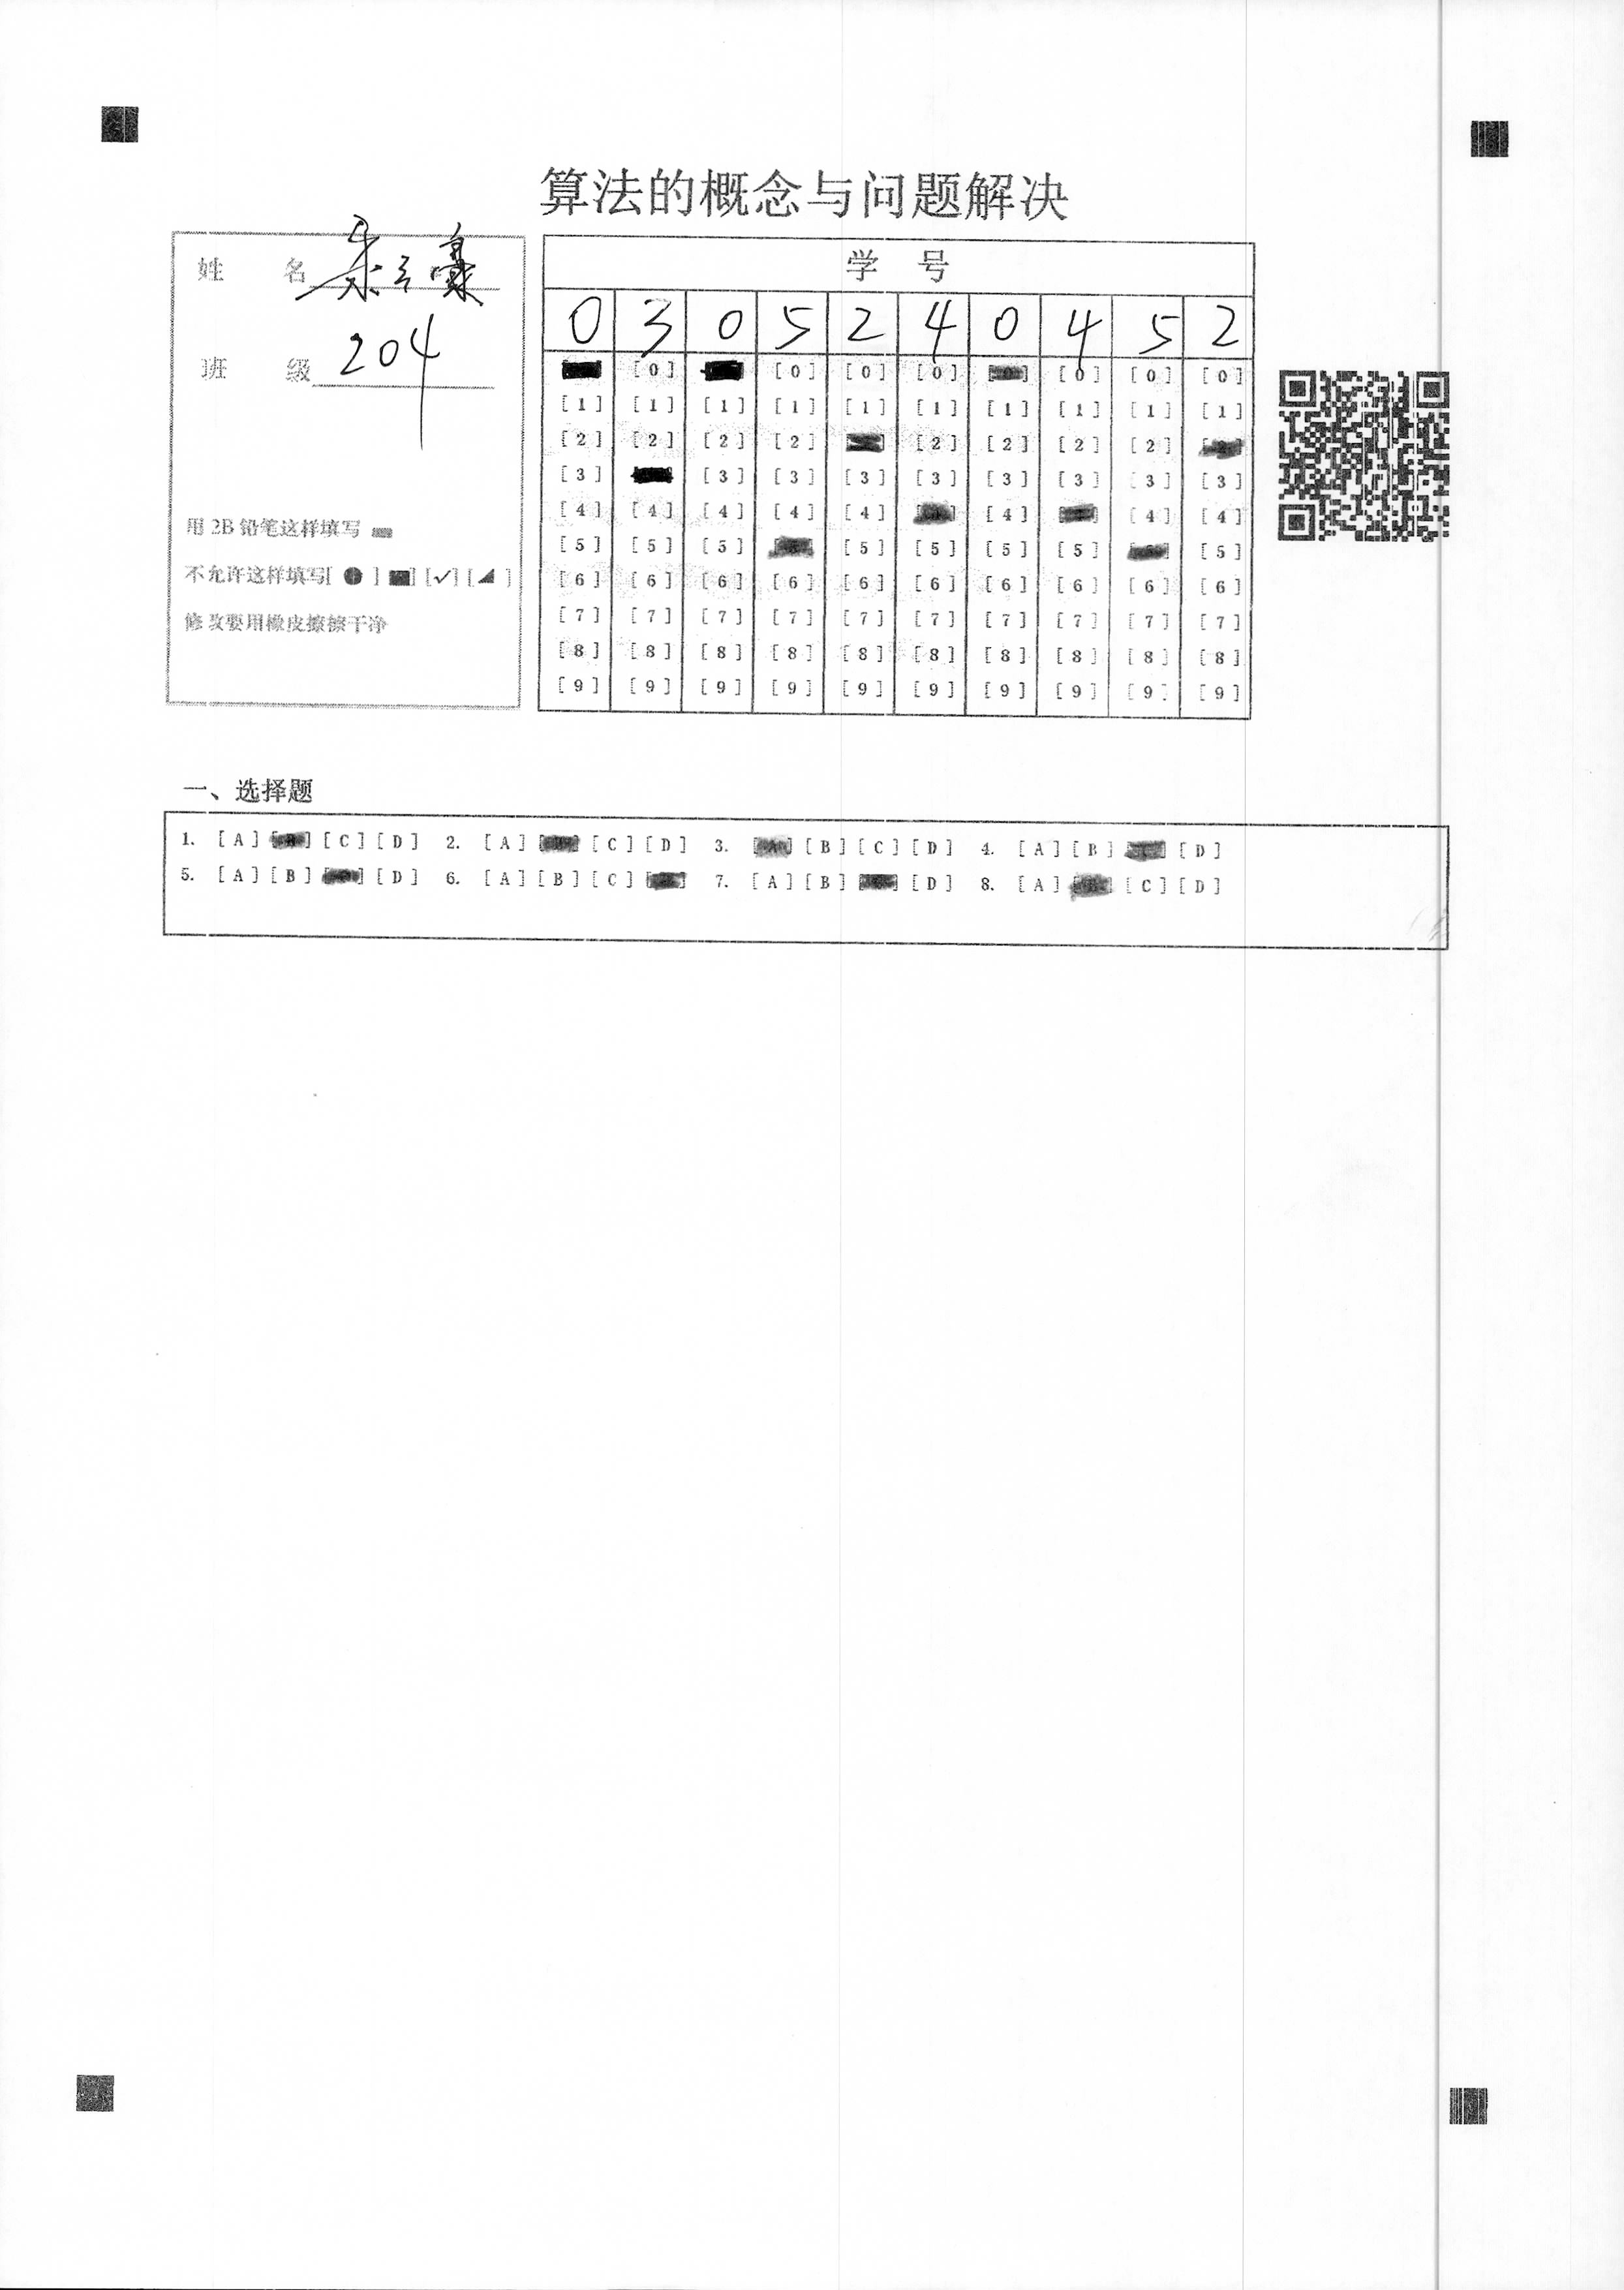 算法的概念与问题解决
姓 名
班 级 204
用 2B 铅笔这样填写
不允许这样填写[ ● ] [■] [✓] [◢ ]
修改要用橡皮擦擦干净
学 号
0 3 0 5 2 4 0 4 5 2
[0] [0] [0] [0] [0] [0] [0]
[1] [1] [1] [1] [1] [1] [1] [1] [1] [1]
[2] [2] [2] [2] [2] [2] [2] [2]
[3] [3] [3] [3] [3] [3] [3] [3] [3]
[4] [4] [4] [4] [4] [4] [4] [4]
[5] [5] [5] [5] [5] [5] [5] [5]
[6] [6] [6] [6] [6] [6] [6] [6] [6] [6]
[7] [7] [7] [7] [7] [7] [7] [7] [7] [7]
[8] [8] [8] [8] [8] [8] [8] [8] [8] [8]
[9] [9] [9] [9] [9] [9] [9] [9] [9] [9]
一、选择题
1. [A] [B] [C] [D] 2. [A] [B] [C] [D] 3. [A] [B] [C] [D] 4. [A] [B] [C] [D]
5. [A] [B] [C] [D] 6. [A] [B] [C] [D] 7. [A] [B] [C] [D] 8. [A] [B] [C] [D]